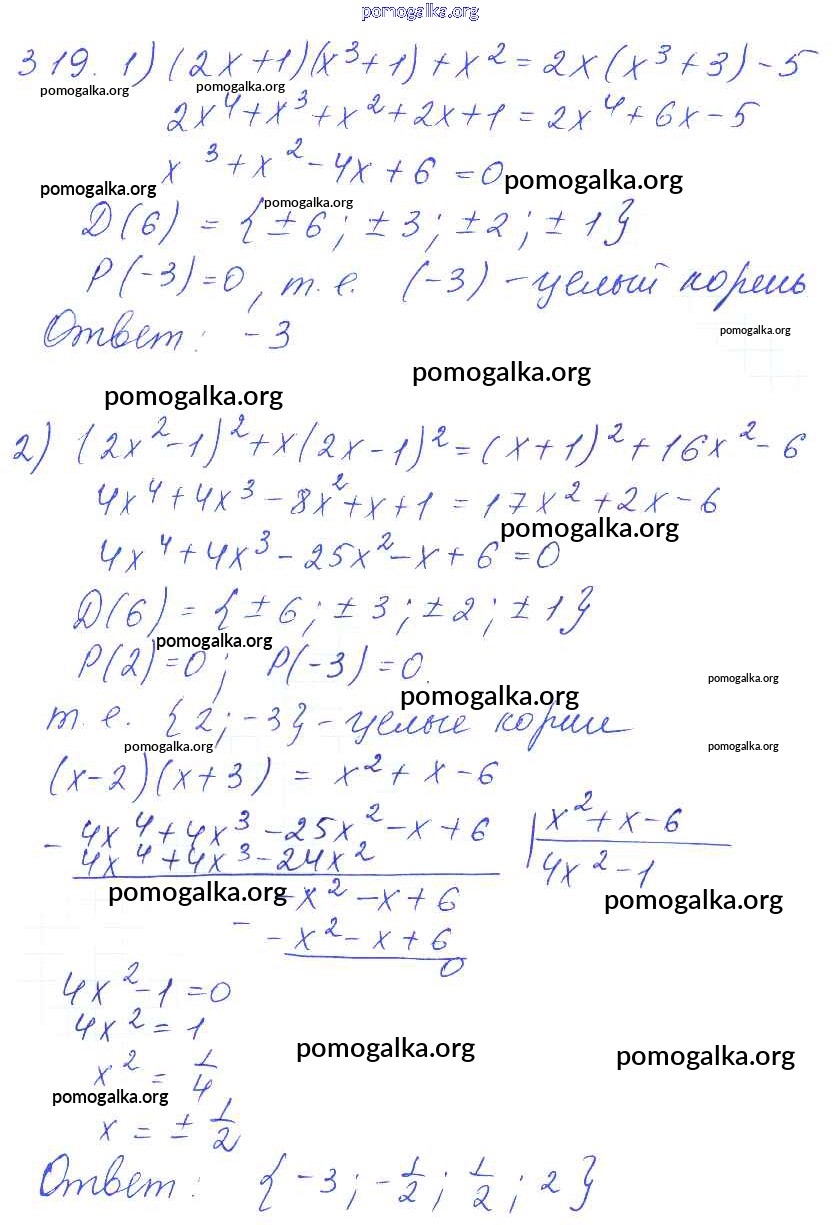 pomogalka.org
319. 1) (2x+1)(x³+1)+x²=2x(x³+3)-5
pomogalka.org pomogalka.org
2x⁴+x³+x²+2x+1=2x⁴+6x-5
x³+x²-4x+6=0
pomogalka.org pomogalka.org pomogalka.org
D(6) = {±6; ±3; ±2; ±1}
P(-3)=0, т.е. (-3) - целый корень
Ответ: -3
pomogalka.org
pomogalka.org
pomogalka.org
2) (2x²-1)²+x(2x-1)²=(x+1)²+16x²-6
4x⁴+4x³-8x²+x+1=17x²+2x-6
pomogalka.org
4x⁴+4x³-25x²-x+6=0
D(6)={±6; ±3; ±2; ±1}
pomogalka.org
P(2)=0; P(-3)=0.
pomogalka.org
pomogalka.org
т.е. {2; -3} - целые корни
pomogalka.org pomogalka.org
(x-2)(x+3) = x²+x-6
- 4x⁴+4x³-25x²-x+6 | x²+x-6
4x⁴+4x³-24x² 4x²-1
pomogalka.org pomogalka.org
-x²-x+6
- -x²-x+6
0
4x²-1=0
4x²=1
pomogalka.org pomogalka.org
x² = 1/4
pomogalka.org
x = ± 1/2
Ответ: {-3; -1/2; 1/2; 2}